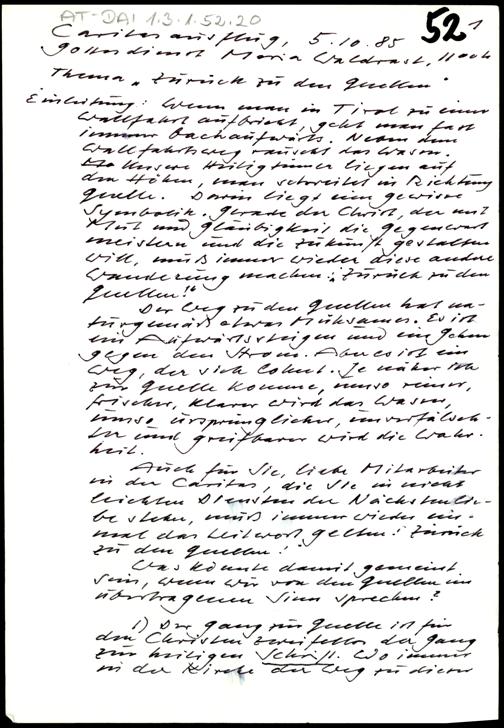 AT-DAI 1.3.1.52.20
52 1
Caritasausflug, 5.10.85
Gottesdienst Maria Waldrast,
Thema „Zurück zu den Quellen"
Einleitung: Wenn man in Tirol zu einer
Wallfahrt aufbricht, geht man fast
immer bachaufwärts. Neben dem
Wallfahrtsweg rauscht das Wasser.
Unsere Heiligtümer liegen auf
den Höhen, man schreitet in Richtung
Quelle. Darin liegt eine gewisse
Symbolik. Gerade der Christ, der mit
Mut und Gläubigkeit die Gegenwart
meistern und die Zukunft gestalten
will, muß immer wieder diese andere
Wanderung machen: „Zurück zu den
Quellen!"
Der Weg zu den Quellen hat na-
turgemäß etwas Mühsames. Es ist
ein Aufwärtssteigen und ein Gehen
gegen den Strom. Aber es ist ein
Weg, der sich lohnt. Je näher ich
zur Quelle komme, umso reiner,
frischer, klarer wird das Wasser,
umso ursprünglicher, unverfälsch-
ter und greifbarer wird die Wahr-
heit.
Auch für Sie, liebe Mitarbeiter
in der Caritas, die Sie in nicht
leichten Diensten der Nächstenlie-
be stehen, muß immer wieder ein-
mal das Leitwort gelten: Zurück
zu den Quellen!
Was könnte damit gemeint
sein, wenn wir von den Quellen im
übertragenen Sinn sprechen?
1) Der Gang zur Quelle ist für
den Christen zweifellos der Gang
zur heiligen Schrift. Wo immer
in der Kirche der Weg zu dieser